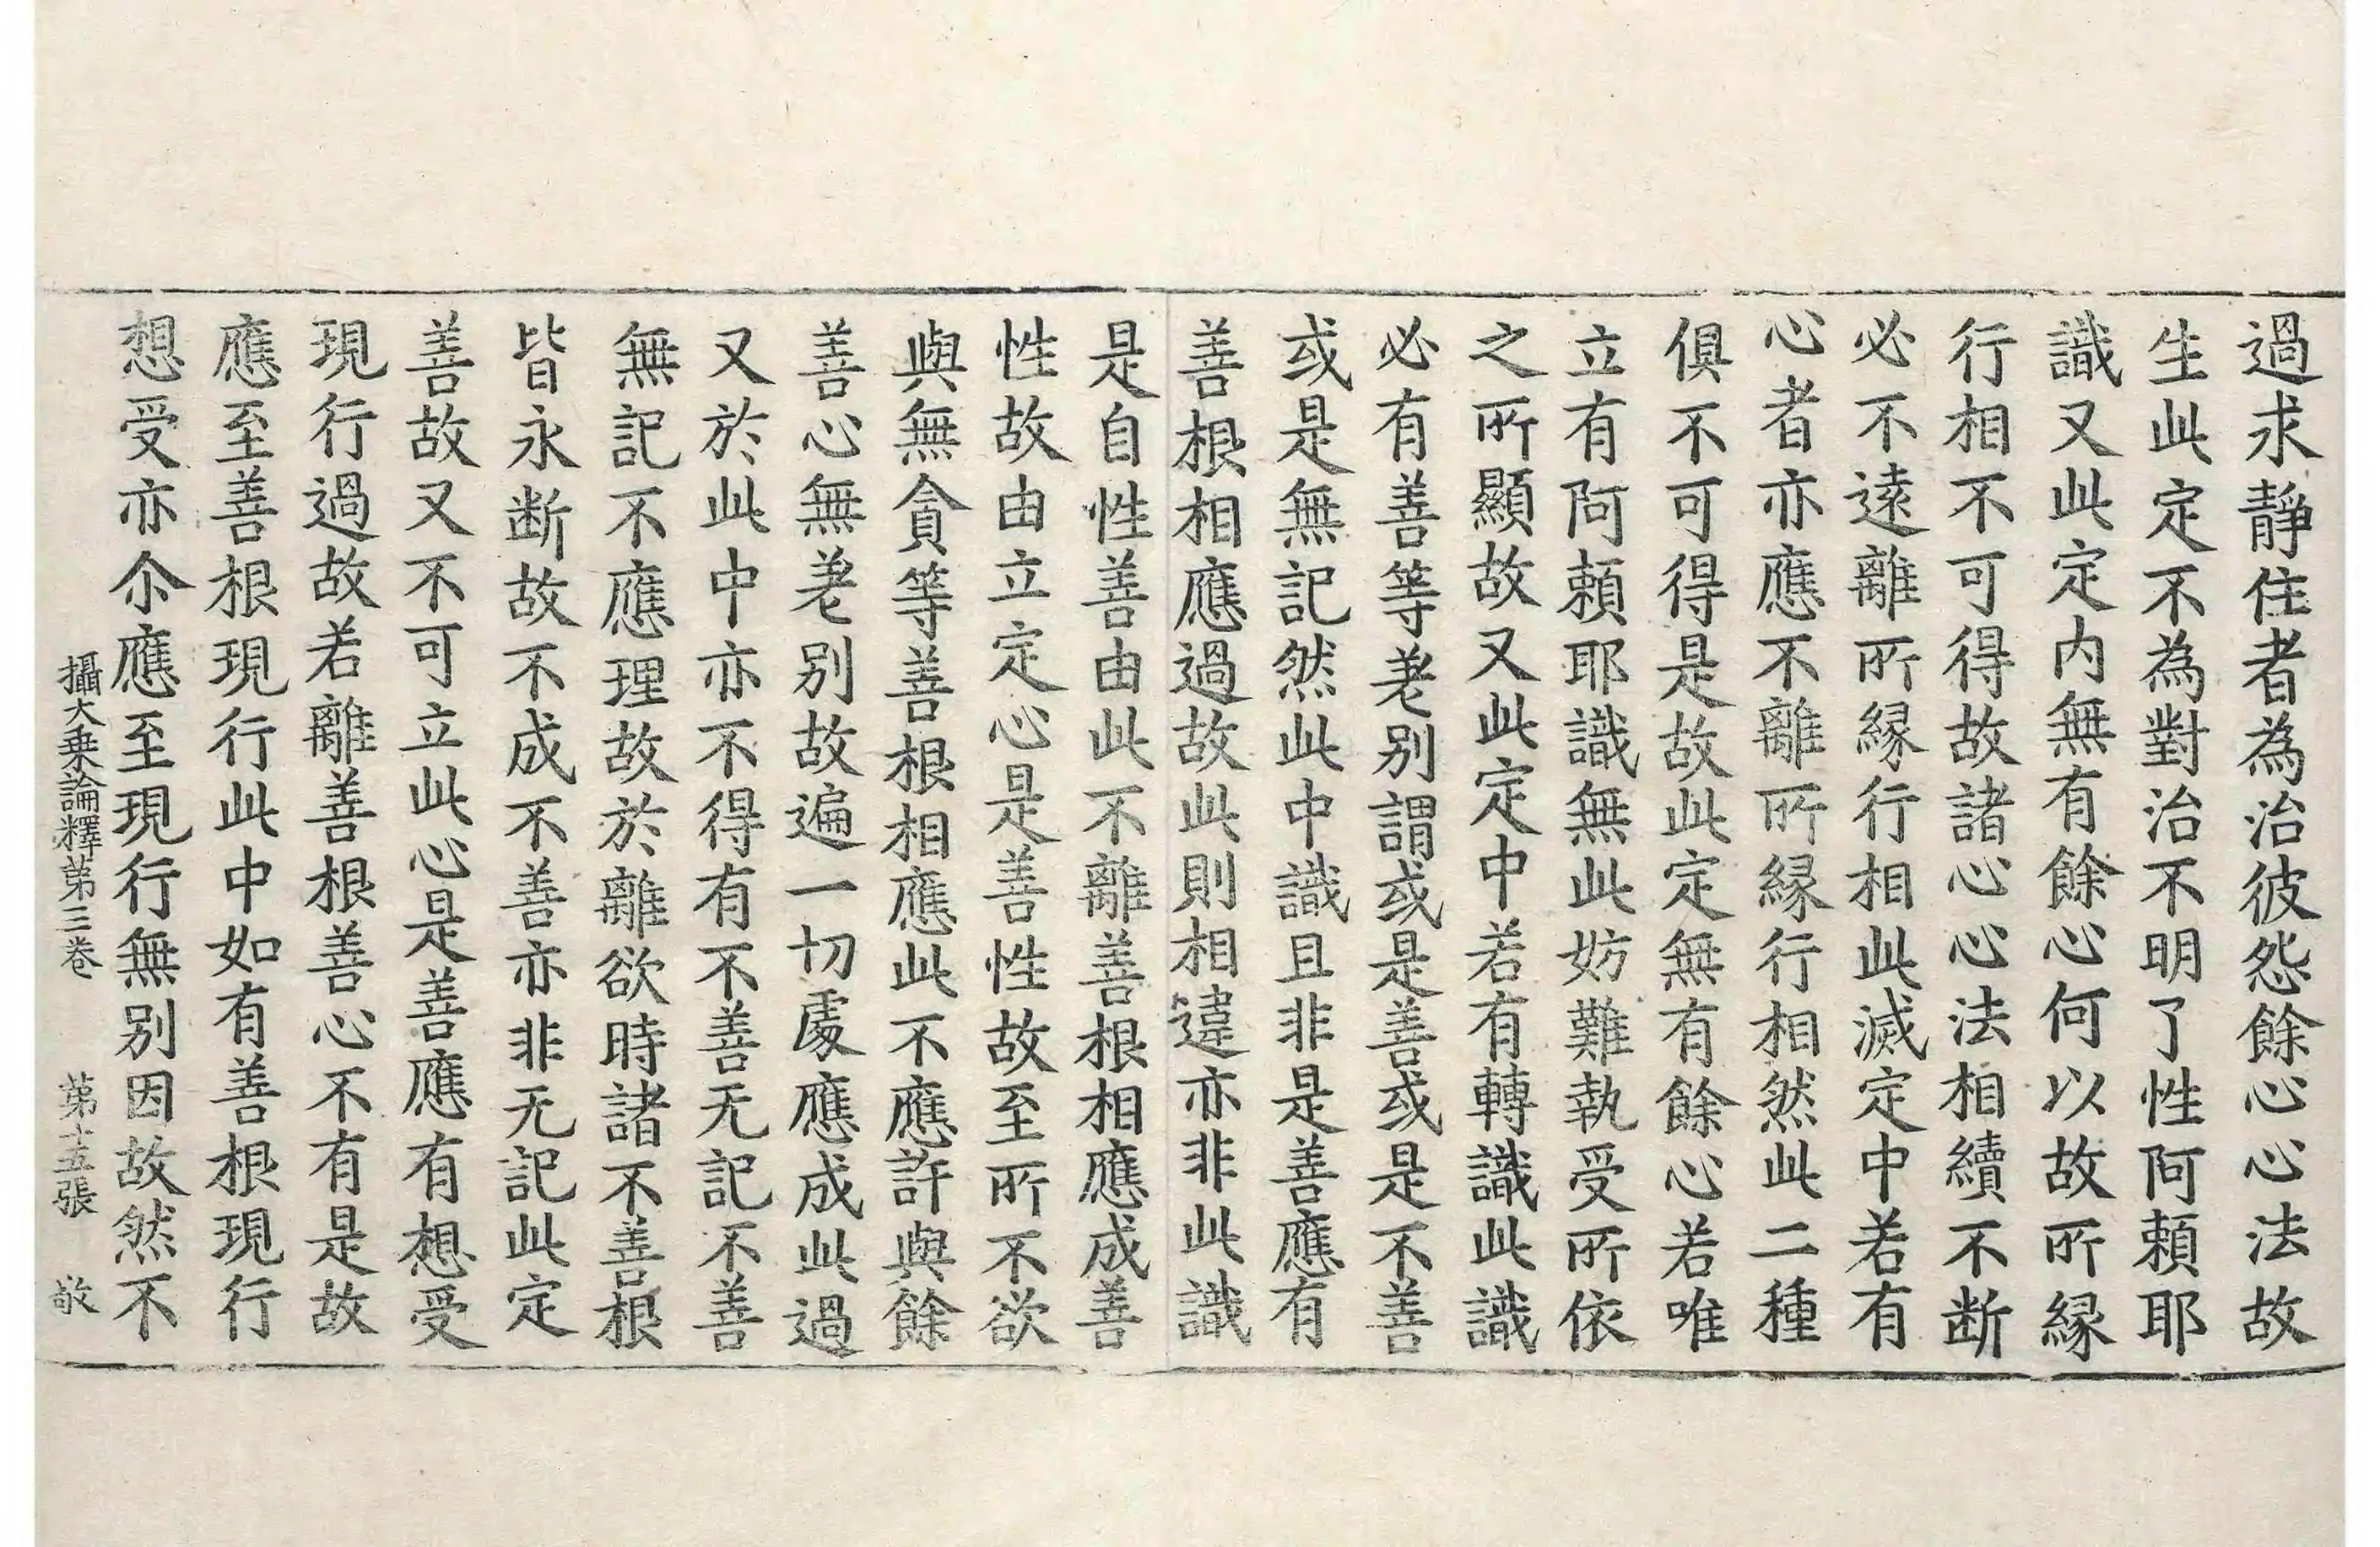 過求靜住者為治彼怨餘心心法故
生此定不為對治不明了性阿頼耶
識又此定内無有餘心何以故所縁
行相不可得故諸心心法相續不断
必不遠離所縁行相此滅定中若有
心者亦應不離所縁行相然此二種
俱不可得是故此定無有餘心若唯
立有阿頼耶識無此妨難執受所依
之所顯故又此定中若有轉識此識
必有善等差别謂或是善或是不善
或是無記然此中識且非是善應有
善根相應過故此則相違亦非此識
是自性善由此不離善根相應成善
性故由立定心是善性故至所不欲
與無貪等善根相應此不應許與餘
善心無差别故遍一切處應成此過
又於此中亦不得有不善无記不善
無記不應理故於離欲時諸不善根
皆永断故不成不善亦非无記此定
善故又不可立此心是善應有想受
現行過故若離善根善心不有是故
應至善根現行此中如有善根現行
想受亦尒應至現行無别因故然不
攝大乗論釋第三卷 第十五張 敬